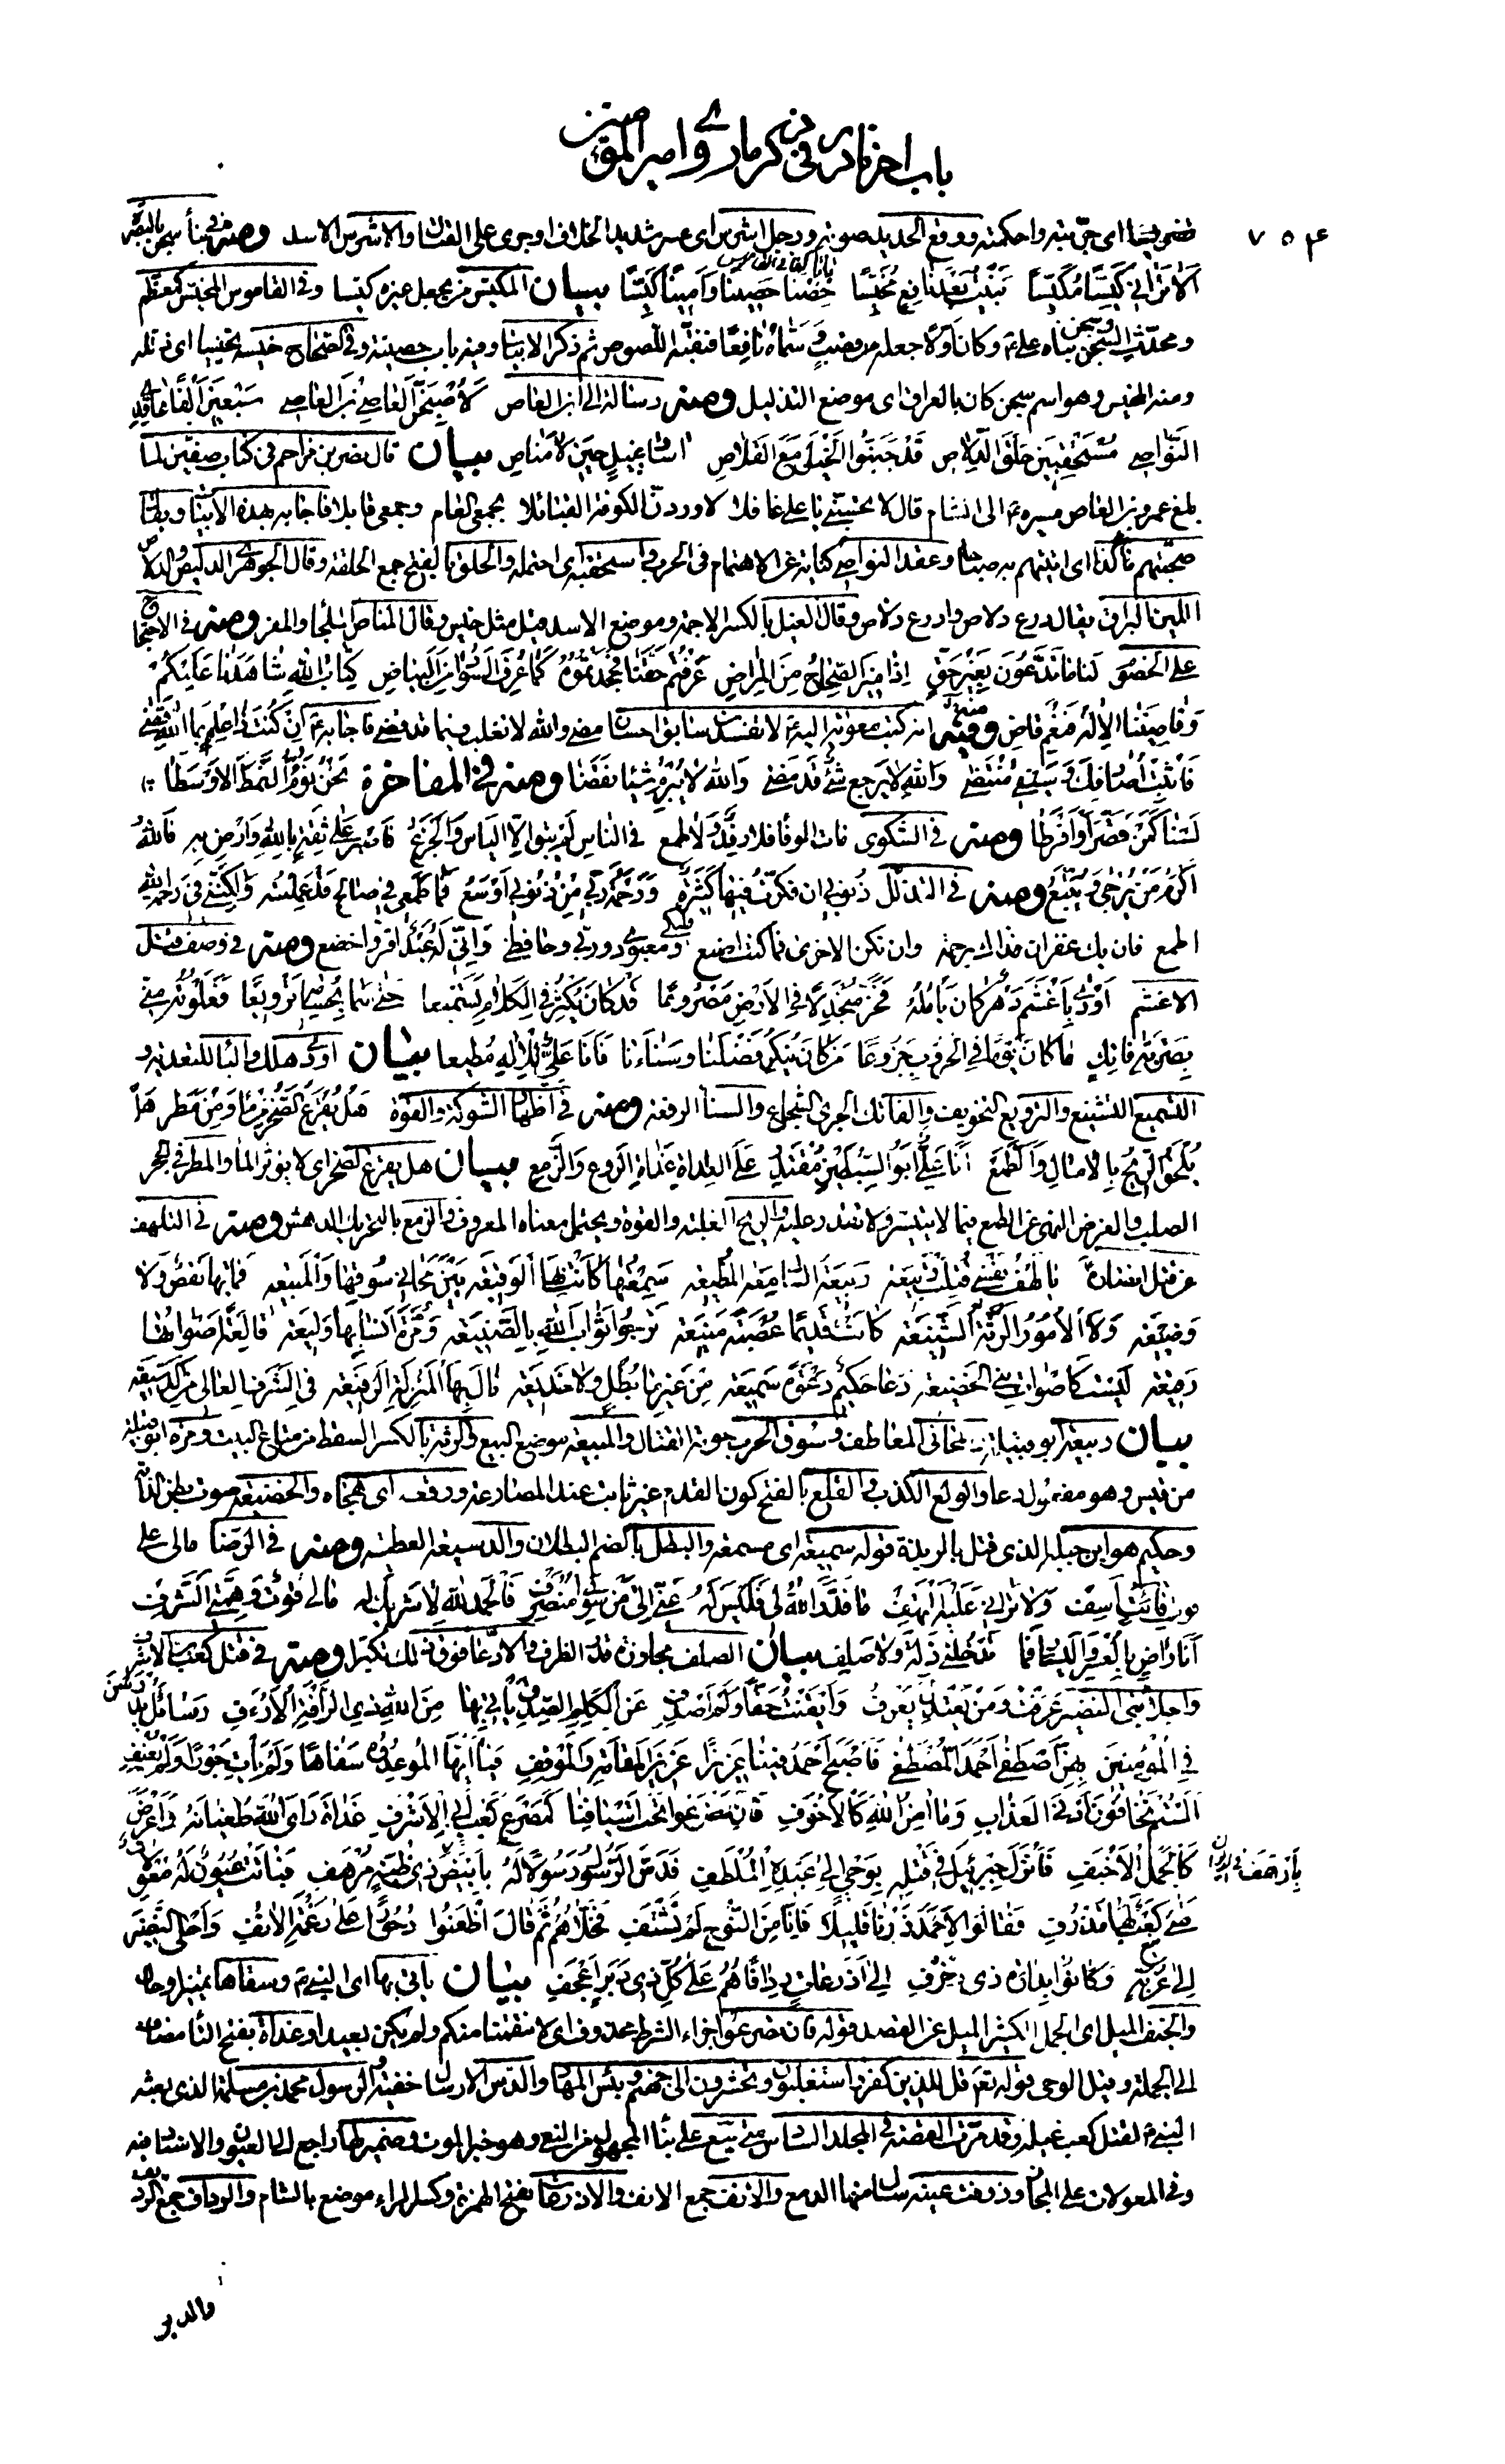 باب اخر نادر في ذكر ما روي امير المؤمنين
٧٥٤
اي جربته واحكمته ووقع الحديد صوته ورجل اشرس اي عسر شديد الخلاف او جرى على القتال والاشرس الاسد ومنه في بناء سجن بالبصرة
الا تراني كيسا مكيسا بنيت بعد نافع مخيسا حصنا حصينا وامينا كيسا بيان المكيس من يجعل غيره كيسا وفي القاموس المخيس كمعظم
ومحدث السجن وسجن بناه علي ع وكان اولا جعله من قصب وسماه نافعا فنقبه اللصوص ثم ذكر الابيات وفيه بابا حصينا وفي الصحاح خيسه تخييسا اي ذلله
ومنه المخيس وهو اسم سجن كان بالعراق اي موضع التذليل ومنه رسالة الى ابن العاص لاصبحن العاصي بن العاصي سبعين الفا عاقدي
النواصي مستحقبين حلق الدلاص قد جنبوا الخيل مع القلاص اساد غيل حين لا مناص بيان قال نصر بن مزاحم في كتاب صفين لما
بلغ عمرو بن العاص مسيره ع الى الشام قال لا تحسبني يا علي غافلا لاوردن الكوفة القنابلا بجمعي العام وجمعي قابلا فاجابه بهذه الابيات ويقال
صبحتهم بكذا اي اتيتهم به صباحا وعقد النواصي كناية عن الاهتمام في الحرب واستحقبه اي احتمله والحلق بالفتح جمع الحلقة وقال الجوهري الدليص والدلاص
اللين البراق يقال درع دلاص وادرع دلاص وقال الغيل بالكسر الاجمة وموضع الاسد فيل مثل خيس وقال المناص الملجأ والمفر ومنه في الاحتجاج
على الخصوم لنا ما تدعون بغير حق اذا ميز الصحاح من المراض عرفتم حقنا فجحدتموه كما عرف السواد من البياض كتاب الله شاهدنا عليكم
وقاضينا الاله فنعم قاض ومنه انه كتب معوية اليه ع لا تفسدن سابق احسان مضى والله لا تغلب فيما قد قضى فاجابه ع ان كنت ذا علم بما الله قضى
فاثبت اصادفك وسيفي منتضى والله لا يرجع شيء قد مضى والله لا يبرم شيئا نقضا ومنه في المفاخرة نحن نؤم النمط الاوسطا
لسنا كمن قصر او افرطا ومنه في الشكوى مات الوفا فلا رفد ولا طمع في الناس لم يبق الا الياس والجزع فاصبر على ثقة بالله وارض به فالله
اكرم من يرجى ويتبع ومنه في التذلل ذنوبي ان فكرت فيها كثيرة ورحمة ربي من ذنوبي اوسع فما طمعي في صالح قد عملته ولكنني في رحمة الله
اطمع فان يك غفران فذاك برحمة وان تكن الاخرى فما كنت اصنع مليكي ومعبودي وربي وحافظي واني له عبد اقر واخضع ومنه في وصف قتل
الاغشم اودى باغشم دهر كان يامله فخر منجدلا في الارض مصروعا قد كان يكثر في الكلام تسميعا حتى سما بحسامه ترويعا فعلوته مني
بضربة فاتك ما كان يوما في الحروب جزوعا من كان ينكر فضلنا وسناءنا فانا علي للاله مطيعا بيان اودى هلك والباء للتعدية و
التسميع التشنيع والترويع التخويف والفاتك الجري الشجاع والسناء الرفعة ومنه في اظهار الشوكة والقوة هل يقرع الصخر من ماء ومن مطر هل
يلحق الريح بالامال والطمع انا علي ابو السبطين مقتدر على العداة غداة الروع والزمع بيان هل يقرع الصخر اي لا يؤثر الماء والمطر في الحجر
الصلب والغرض النهي عن الطمع فيما لا يتيسر ولا تقدر عليه والريح الغلبة والقوة ويحتمل معناه المعروف والزمع بالتحريك الدهش ومنه في التلهف
عن قتل انصاره يا لهف نفسي قتلت ربيعة ربيعة السامعة المطيعة سمعتها كانت بها الوقيعة بين محاني سوقها والمبيعة فما بها نقص ولا
وضيعة ولا الامور الرثة الشنيعة كانت قديما عصبة منيعة ترجو ثواب الله بالصنيعة ومرة انسابها وليعة قالعة اصواتها
رفيعة ليست كاصوات بني الخضيعة دعا حكيم دعوة سميعة من غير ما بطل ولا خديعة نال بها المنزلة الرفيعة في الشرف العالي من الدسيعة
بيان ربيعة ابو قبيلة والمحاني المعاطف وسوق الحرب حومة القتال والمبيعة موضع البيع والرثة بالكسر السقط من متاع البيت ومرة ابو قبيلة
من قيس وهو مفعول دعا والولع الكذب والقلع بالفتح كون القدم غير ثابت عند المصارعة ورفعه اي هجاه والخضيعة صوت بطن الدابة
وحكيم هو ابن جبلة الذي قتل بالربذة قوله سميعة اي مسمعة والبطل بالضم البطلان والدسيعة العطية ومنه في الرضا مالي على
فوت فائت اسف ولا تراني عليه التهف ما قدر الله لي فليس له عني الى من سواي منصرف فالحمد لله لا شريك له مالي قوت وهمتي الشرف
انا راض بالعسر واليسار فما تدخلني ذلة ولا صلف بيان الصلف مجاوزة قدر الظرف والادعا فوق ذلك تكبرا ومنه في قتل كعب بن الاشرف
واجلاء بني النضير عرفت ومن يعتدل يعرف وايقنت حقا ولم اصدف عن الكلم الصدق ياتي بها من الله ذي الرافة الارءف رسائل تدرسن
في المؤمنين بهن اصطفى احمد المصطفى فاصبح احمد فينا عزيزا عزيز المقامة والموقف فيا ايها الموعدوه سفاها ولم يات جورا ولم يعنف
الستم تخافون ادنى العذاب وما امن الله كالاخوف فان تصرعوا تحت اسيافنا كمصرع كعب ابي الاشرف غداة راى الله طغيانه واعرض
كالجمل الاجنف فانزل جبرئيل في قتله بوحي الى عبده الملطف فدس الرسول رسولا له بابيض ذي ظبة مرهف فباتت عيون له معولات
بارهف في الديوان
متى ينع كعب لها تذرف فقالوا لاحمد ذرنا قليلا فانا من النوح لم نشتف فخلاهم ثم قال اظعنوا دحورا على رغمة الانف واجلى النضير
الى غربة وكانوا بدارة ذي زخرف الى اذرعات ردافا هم على كل ذي دبر اعجف بيان ياتي بها اي النبي ع وسفاها تميز او حال
والجنف الميل اي الجمل الكثير الميل عن القصد قوله فان تصرعوا جزاء الشرط محذوف اي لانتقمنا منكم ولم يكن بعيدا وغداة بفتح التا مضاف
الى الجملة وقيل الوحي قوله تعالى قل للذين كفروا ستغلبون وتحشرون الى جهنم وبئس المهاد والدس الارسال خفية والرسول محمد بن مسلمة الذي بعثه
النبي ع لقتل كعب غيلة وقد مرت القصة في المجلد السادس متى ينع على بناء المجهول من النعي وهو خبر الموت وضمير لها راجع الى العيون والاسناد فيه
وفي المعولات على المجاز وذرفت عينه سال منها الدمع والانف جمع الانف والاذرعات بفتح الهمزة وكسر الراء موضع بالشام والرداف جمع الردف
والدبر